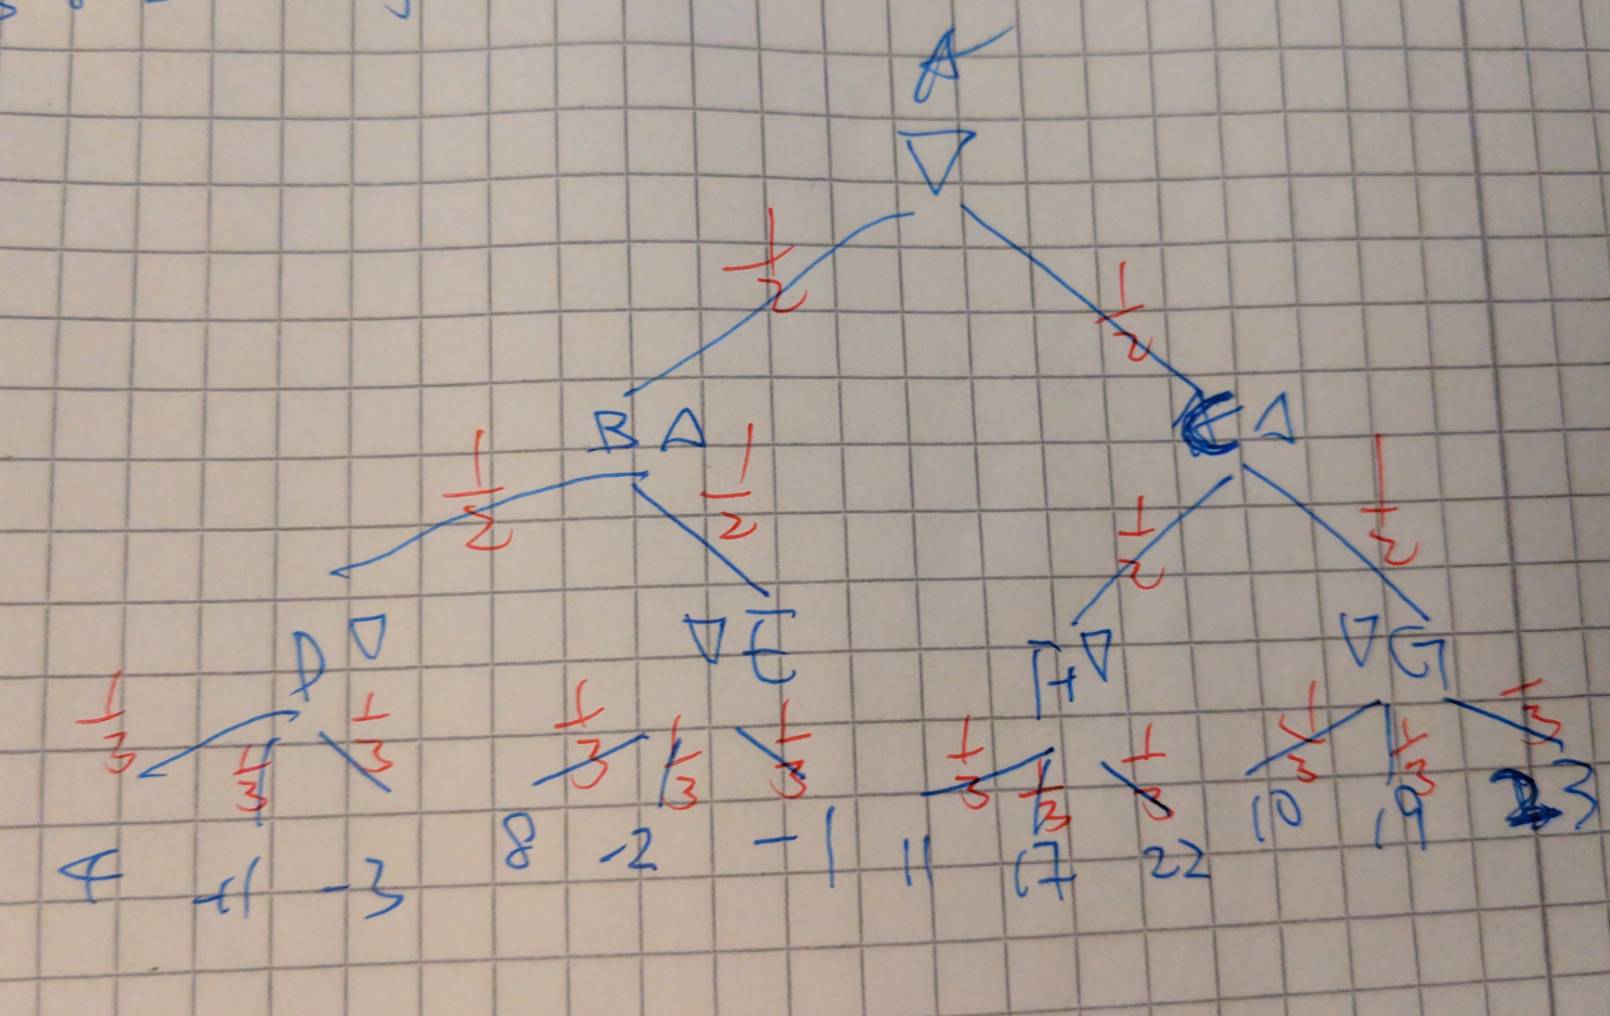 A
1/2 1/2
B Δ C Δ
1/2 1/2 1/2 1/2
D ∇ ∇ E F ∇ ∇ G
1/3 1/3 1/3 1/3 1/3 1/3 1/3 1/3 1/3 1/3 1/3 1/3
4 -3 8 -2 -1 11 17 22 10 19